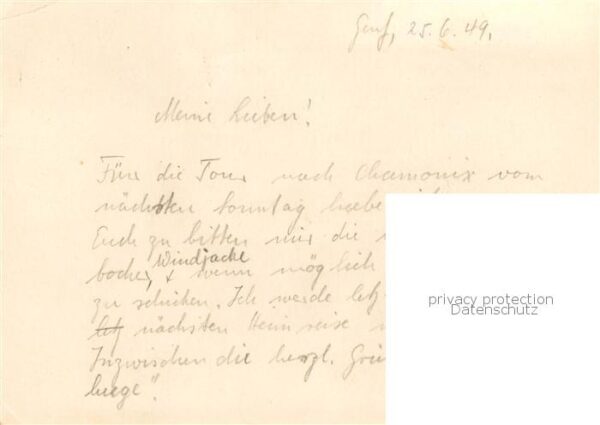 Genf, 25. 6. 49.
Meine Lieben!
Für die Tour nach Chamonix vom
nächsten Sonntag habe
Euch zu bitten mir die
Windjacke
wenn möglich
zu schicken. Ich werde
nächsten Heimreise
Inzwischen die herzl. Grü
privacy protection
Datenschutz